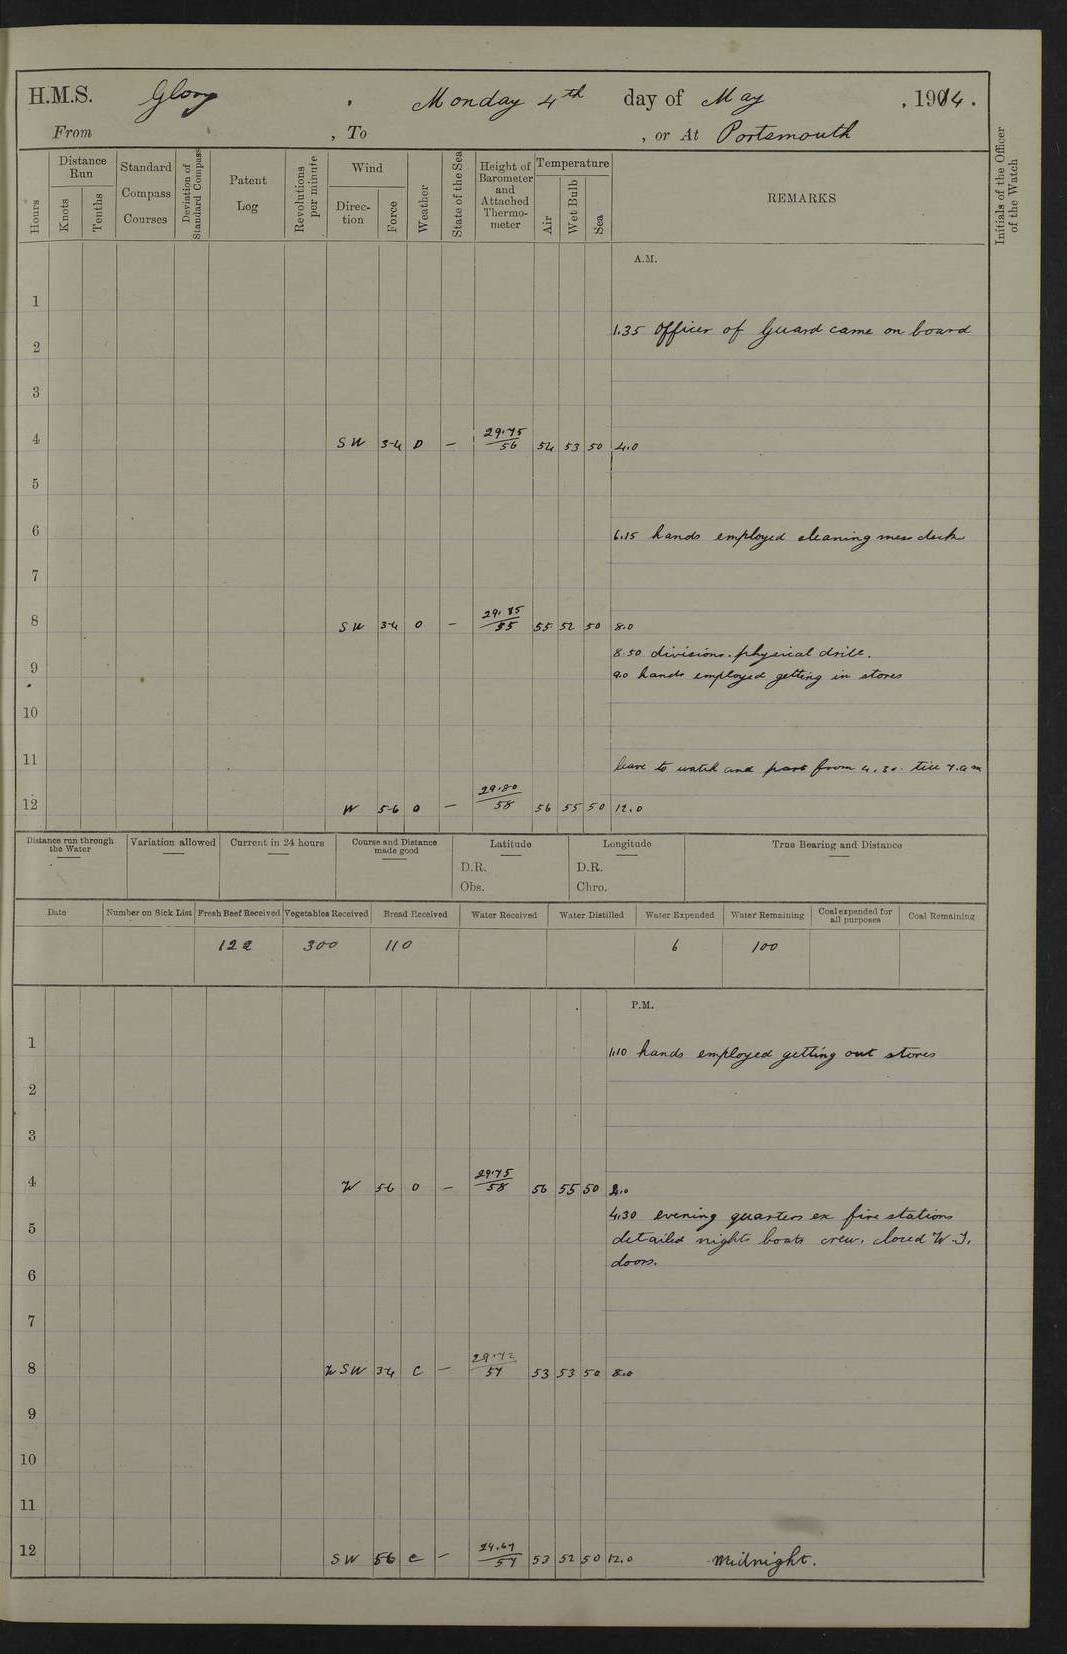 H.M.S. Glory , Monday 4th day of May , 1914.
From , To , or At Portsmouth
Initials of the Officer of the Watch
Hours
Distance Run
Knots
Tenths
Standard Compass Courses
Deviation of Standard Compass
Patent Log
Revolutions per minute
Wind
Direction
Force
Weather
State of the Sea
Height of Barometer and Attached Thermometer
Temperature
Air
Wet Bulb
Sea
REMARKS
A.M.
1
1.35 Officer of Guard came on board
2
3
4 SW 3-4 O — 29.75/56 54 53 50 4.0
5
6 6.15 hands employed cleaning mess deck
7
8 SW 3-4 O — 29.85/55 55 52 50 8.0
8.50 divisions. physical drill.
9 9.0 hands employed getting in stores
10
11 leave to watch and part from 4.30. till 7.am
12 W 5-6 O — 29.80/58 56 55 50 12.0
Distance run through the Water
Variation allowed
Current in 24 hours
Course and Distance made good
Latitude
D.R.
Obs.
Longitude
D.R.
Chro.
True Bearing and Distance
Date
Number on Sick List
Fresh Beef Received
Vegetables Received
Bread Received
Water Received
Water Distilled
Water Expended
Water Remaining
Coal expended for all purposes
Coal Remaining
300 110 6 100
P.M.
1 1.10 hands employed getting out stores
2
3
4 W 56 O — 29.75/58 56 55 50
4.30 evening quarters ex fire stations
5 detailed nights boats crew. closed W.T.
doors.
6
7
8 WSW 34 C — 29.72/57 53 53 50 8.0
9
10
11
12 SW 56 C — 57 53 52 50 12.0 Midnight.